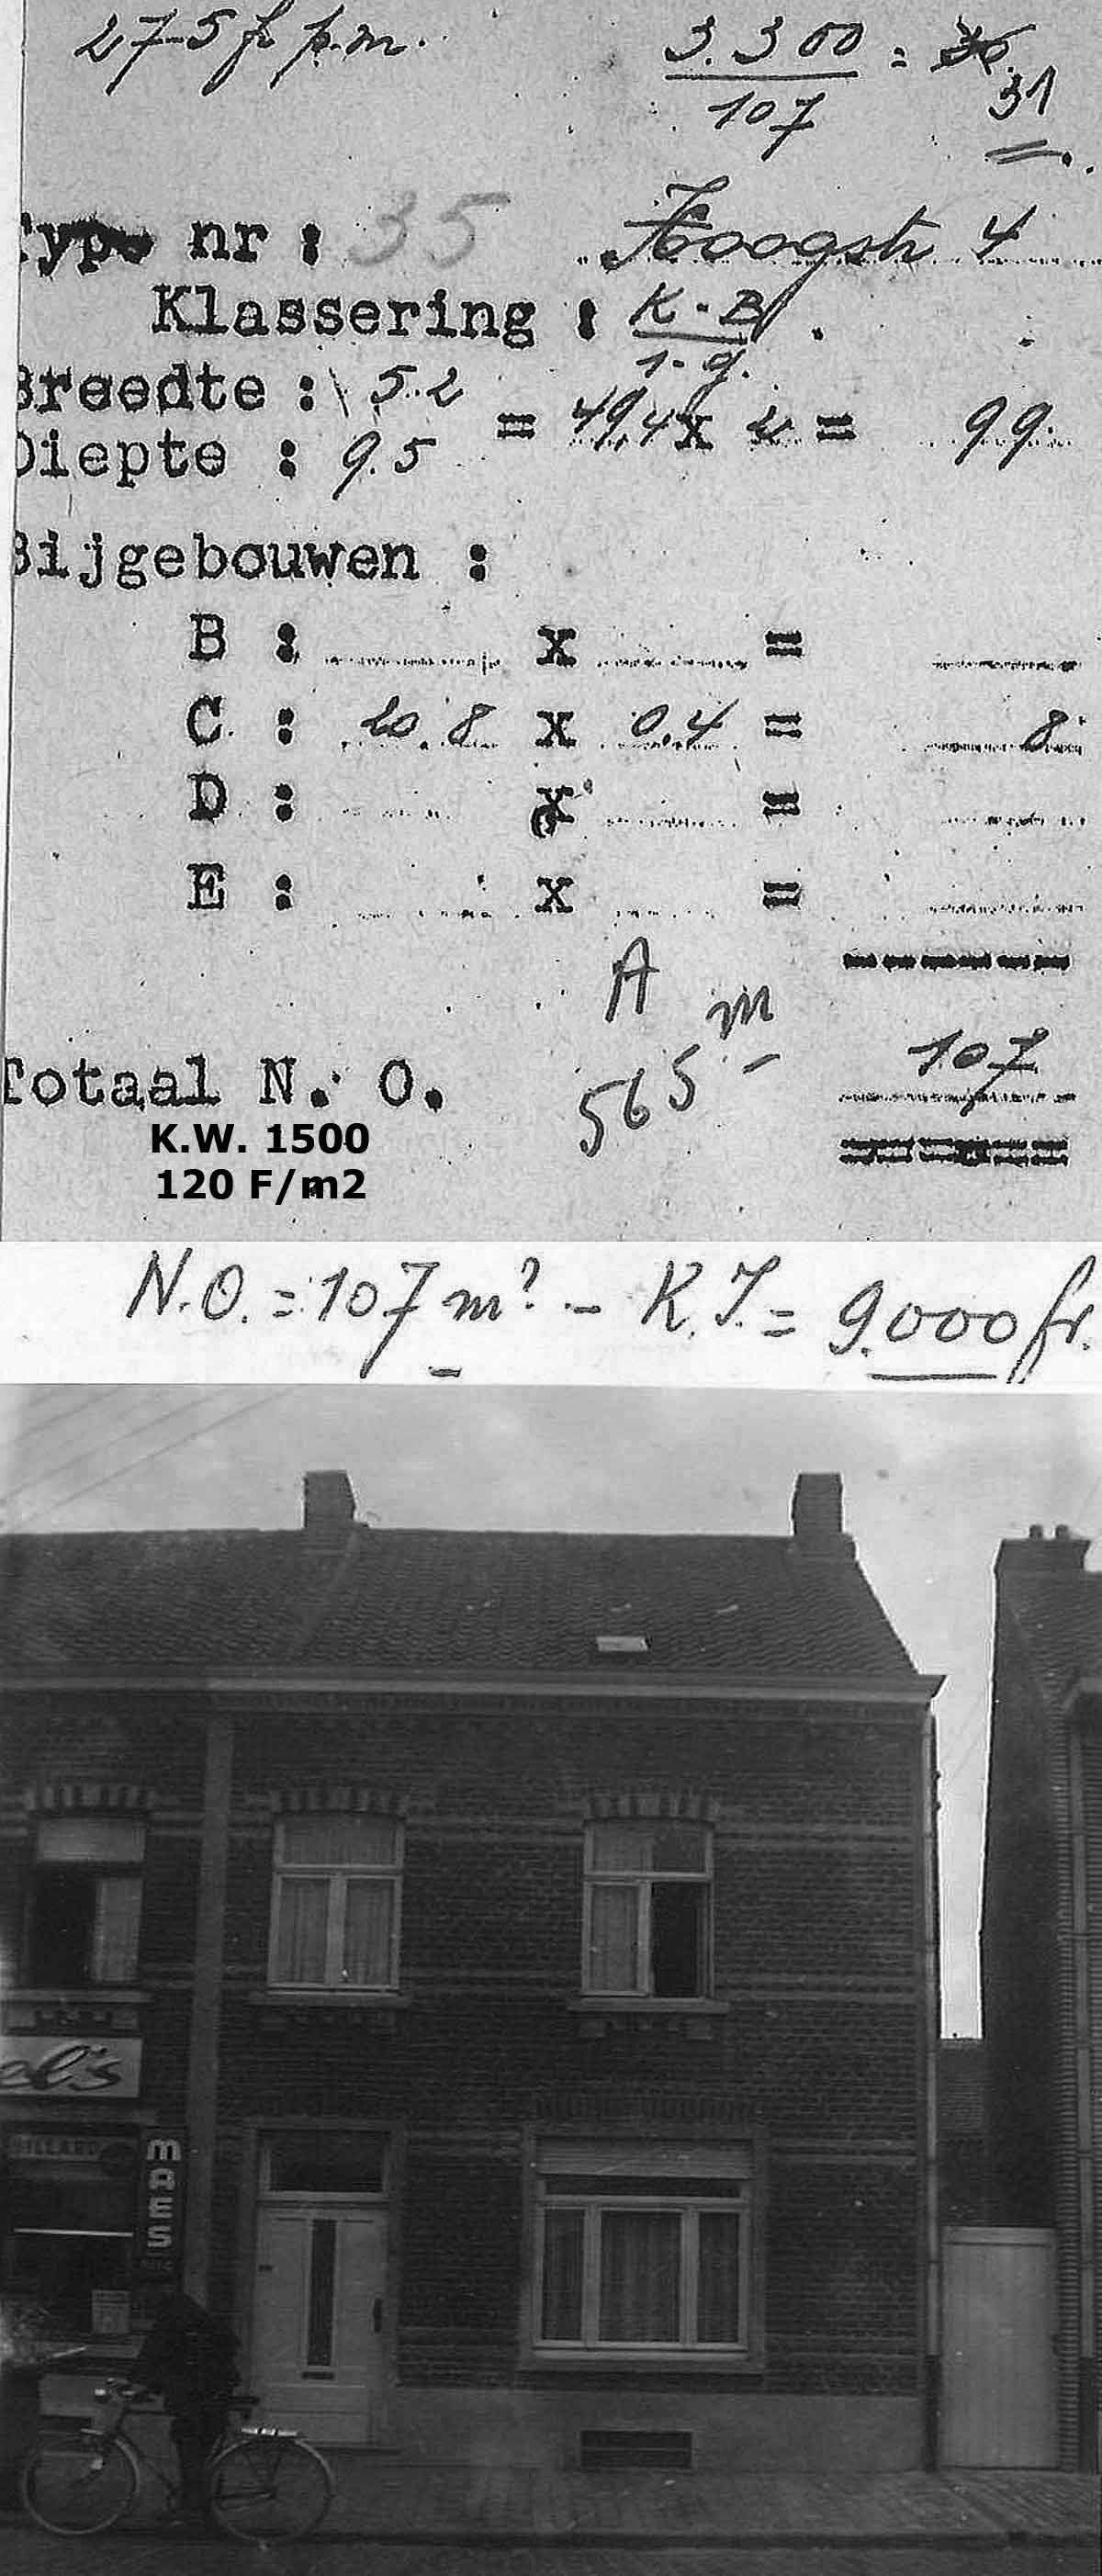 275 fr p.m.
3.300 / 107 = 31
Type nr : 35 Hoogstr 4
Klassering : K-B / 1-g.
Breedte : 5.2
= 49,4 x 2 = 99
Diepte : 9.5
Bijgebouwen :
B : x =
C : 20.8 x 0.4 = 8
D : x =
E : x =
A
m
565 -
Totaal N. O. 107
K.W. 1500
120 F/m2
N.O. = 107 m² - K.I. = 9.000 fr.
el's
BILLARD
MAES